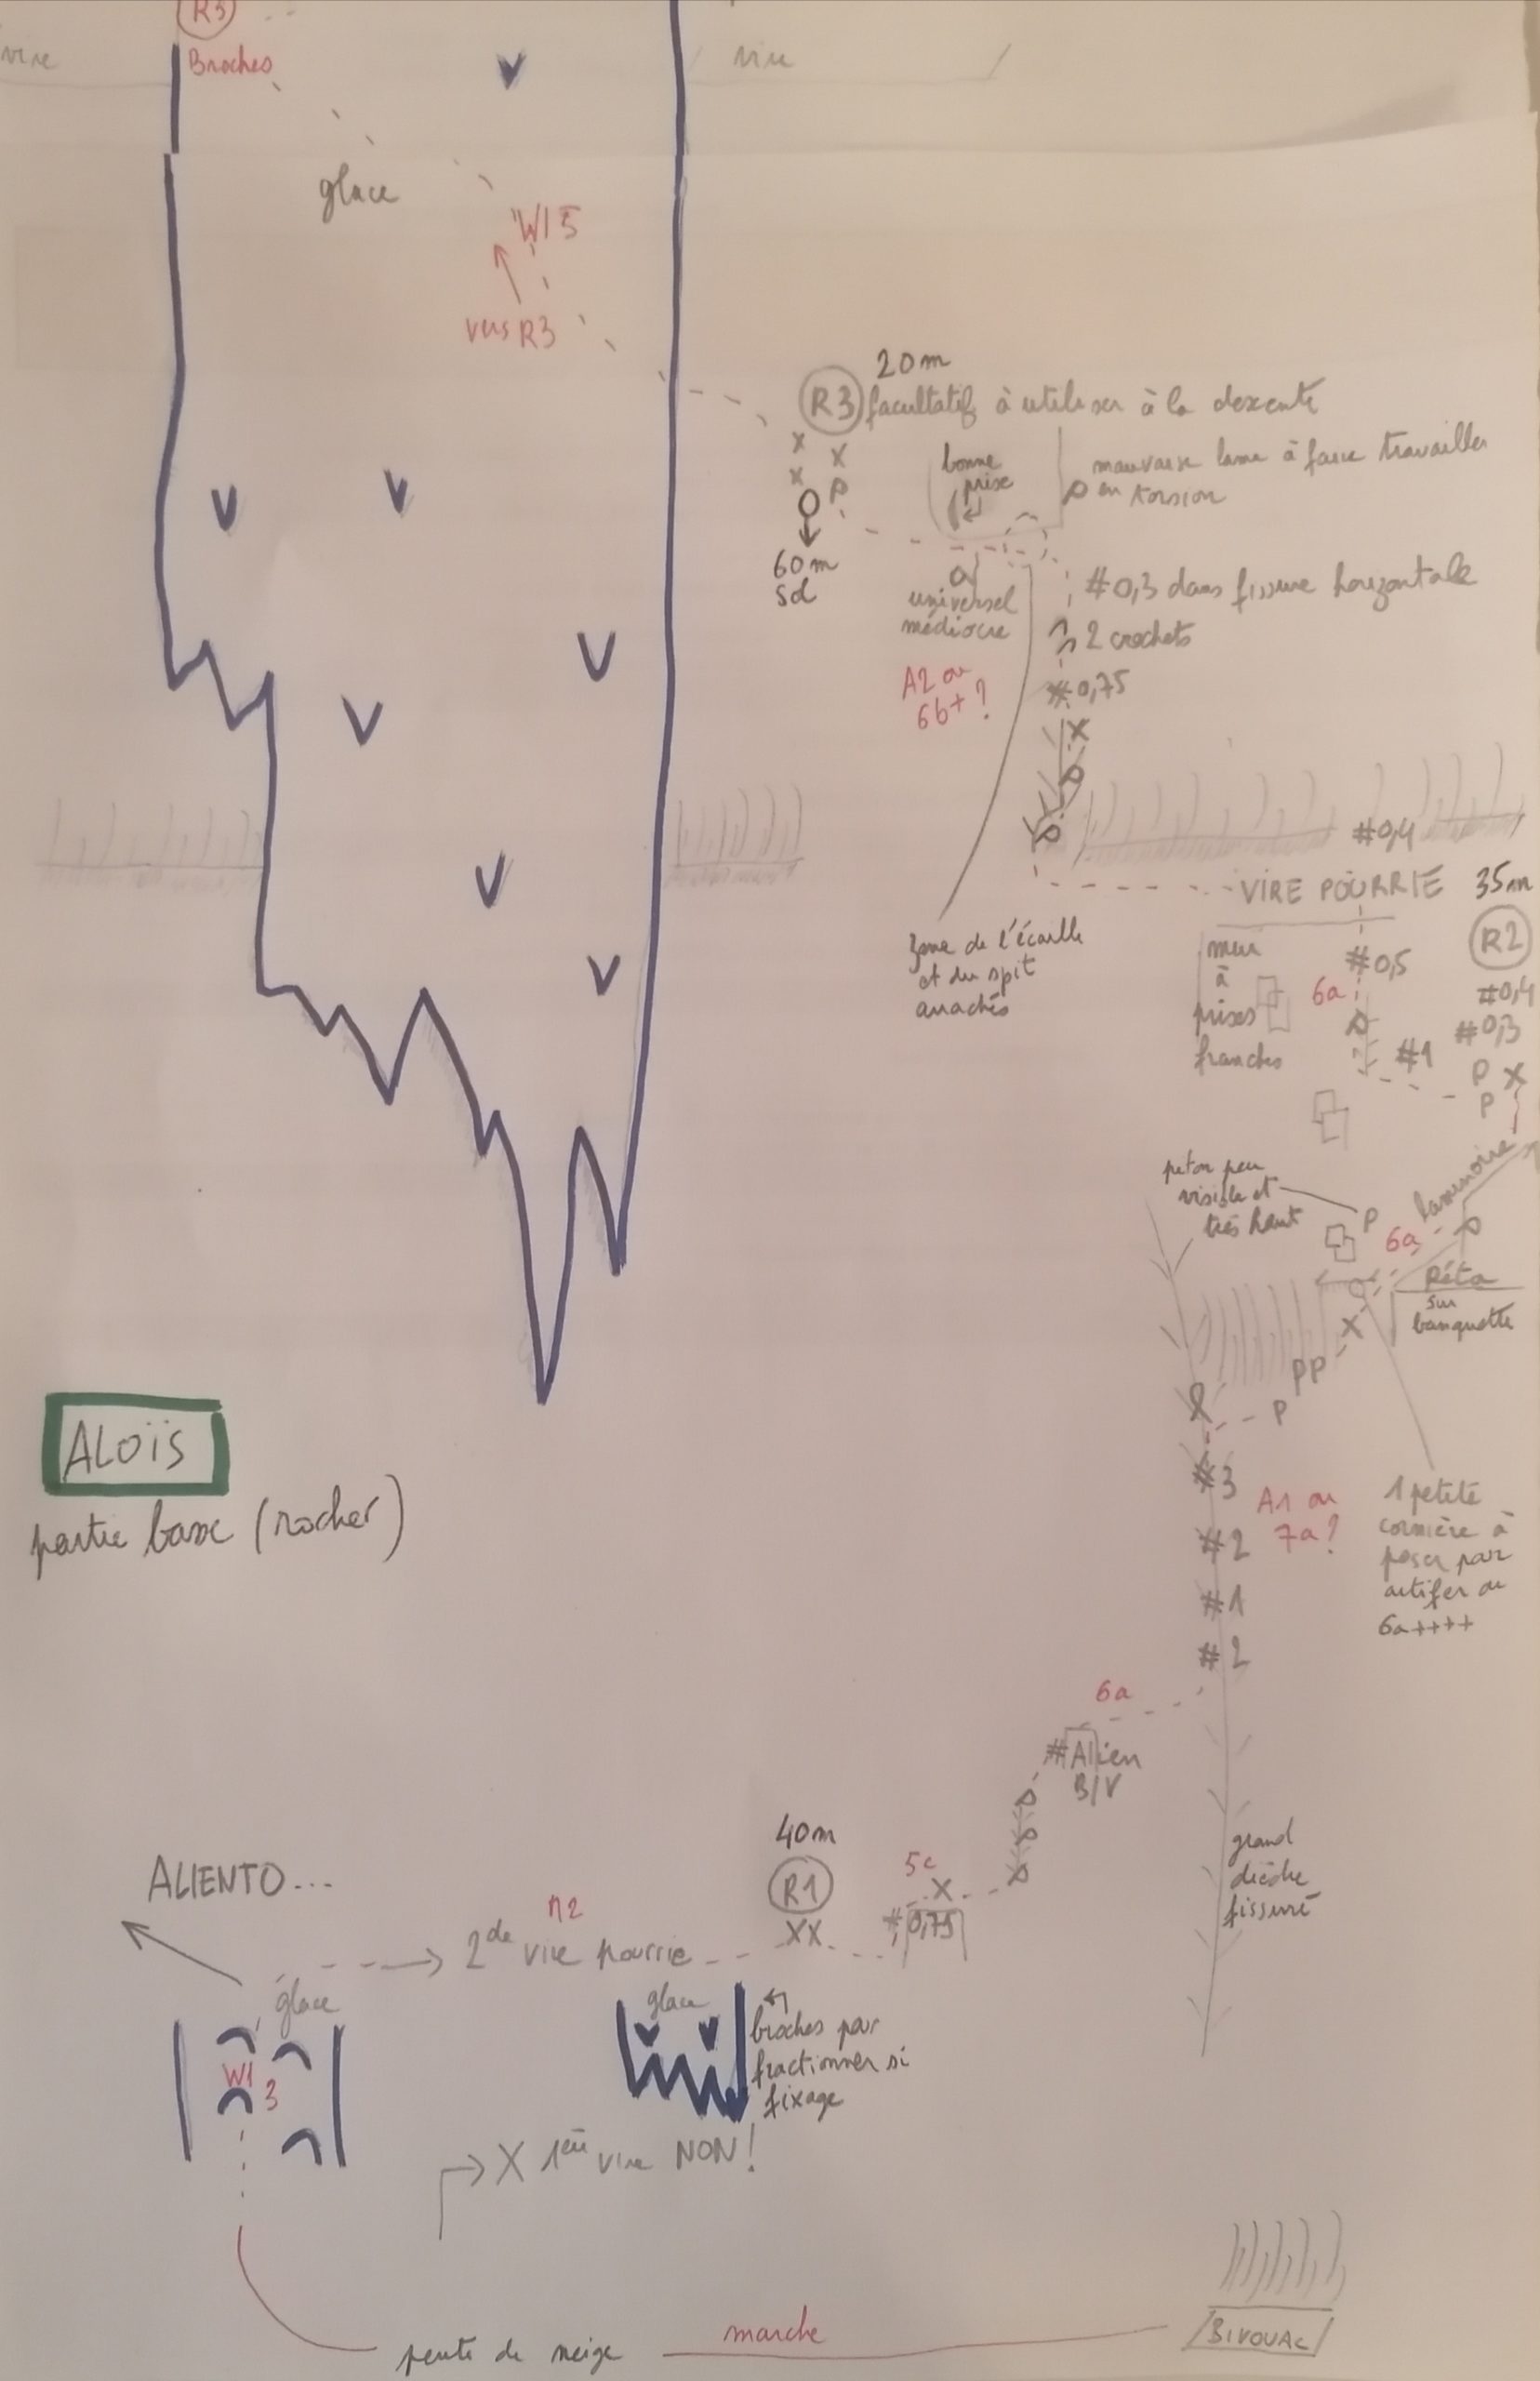 R3
vire
Broches
vire
glace
WI 5
vers R3
20m
R3 facultatif à utiliser à la descente
bonne
prise
mauvaise lame à faire travailler
en torsion
60m
sol
universel
médiocre
#0,3 dans fissure horizontale
2 crochets
A2 ou
6b+ ?
#0,75
X
#0,4
VIRE POURRIE
35m
R2
zone de l'écaille
et du spit
arrachés
mur
à
prises
franches
#0,5
6a
#1
#0,4
#0,3
P X
P
piton peu
visible et
très haut
P
laminoire
6a
Réta
sur
banquette
X
PP
P
#3
A1 ou
7a ?
#2
#1
#2
1 petite
cornière à
poser par
artifer ou
6a++++
ALOÏS
partie basse (rocher)
6a
#Alien
B/V
grand
dièdre
fissuré
ALIENTO...
40m
R1
XX
5c
X
#0,75
M2
2de vire pourrie
glace
WI
3
glace
broches pour
fractionner si
fixage
X 1ère vire NON !
pente de neige
marche
BIVOUAC